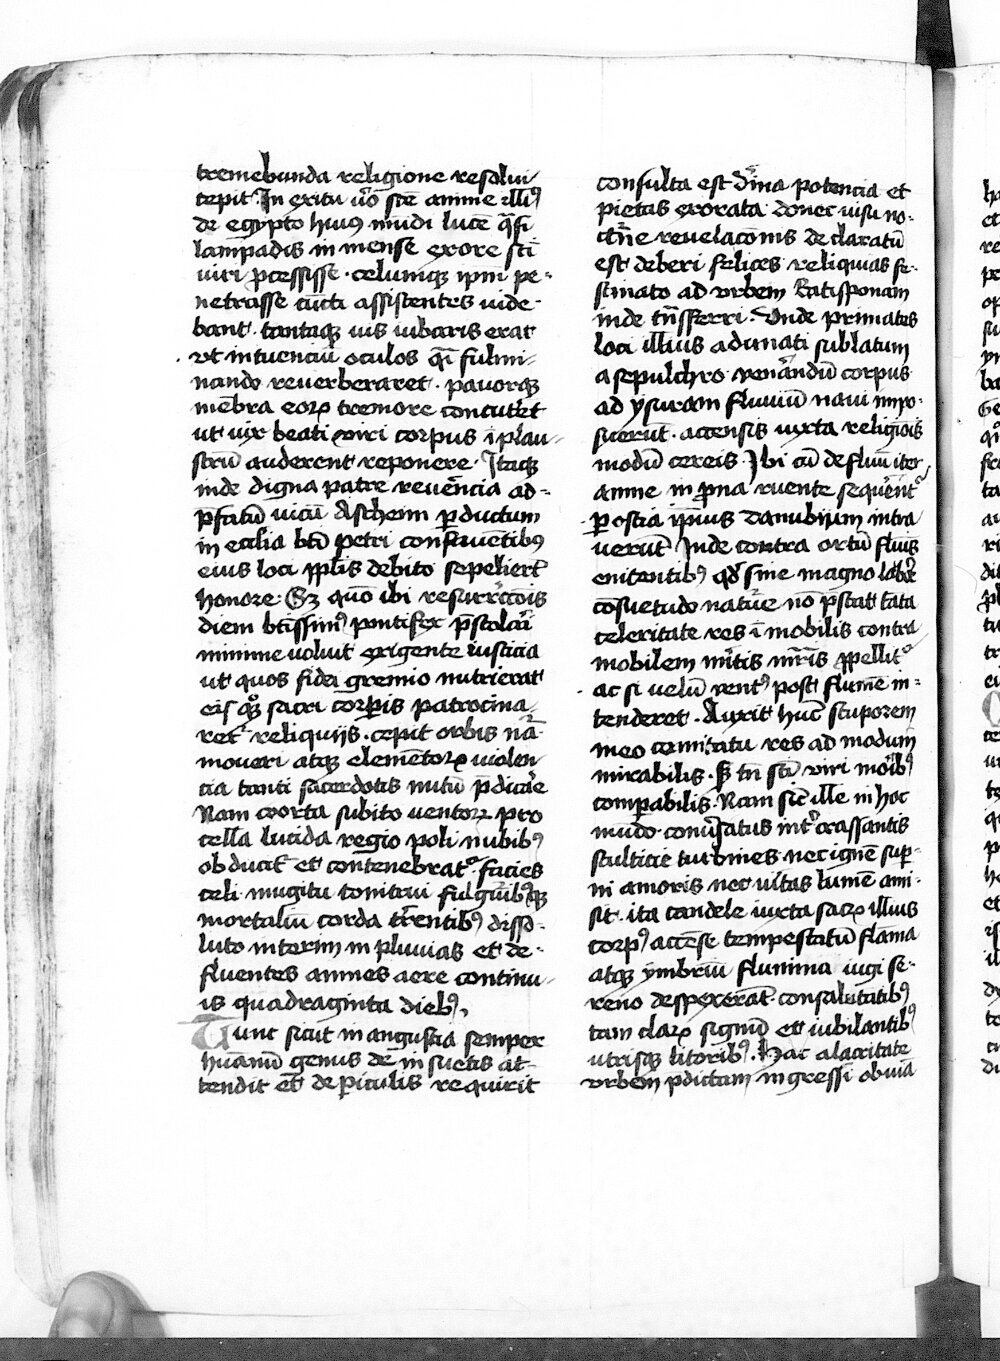 tremebunda religione resolui
cepit. In exitu v̄o sc̄e anime illiꝰ
de egypto huiꝰ mūdi lucē q̄si
lampadis in mense exore sc̄i
viri ꝓcessisse. celumqꝫ ip̄m pe-
netrasse cūcti assistentes vide-
bant. tantaqꝫ vis iubaris erat
vt intuenciū oculos q̄i fulmi-
nando reuerberaret. pauorqꝫ
mēbra eoꝝ tremore concut̄et
ut vix beati viri corpus ī plau-
strū auderent reponere. Itaqꝫ
inde digna patre reuēncia ad-
p̄fatū vicū Aschein ꝑductum
in ecclia bt̄i petri confluētibꝰ
eius loci ꝓplis debito sepeliert̄
honore. Sꝫ quō ibi resurrc̄cōis
diem bt̄issimꝰ pontifex p̄stolari
minime voluit exigente iusticia
ut quos fidei gremio nutrierat
eis quoqꝫ sacri corꝑis patrocina-
ret reliquijs. cepit orbis nā-
moueri atqꝫ elemētoꝝ violen
cia tanti sacerdotis nutū p̄dicare
Nam coorta subito ventoꝝ pro
cella lucida regio poli nubibꝰ
obducit̄ et contenebrat᷑ facies
celi mugitu tonitrui fulgu̅ibꝰqꝫ
mortaliū corda tr̄rentibꝰ disso-
luto interim in pluuias et de-
fluentes amnes aere continu-
is quadraginta diebꝰ.
Tunc sicut in angustia semper
humanū genus dē insuetis at-
tendit et de ꝑiculis requirit
consulta est diuīa potencia et
pietas exorata donec visu no-
ctn̄e reuelacōnis declaratū
est deberi felices reliquias fe-
stinato ad vrbem Ratisponam
inde tn̄sferri. Vnde primates
loci illius adunati sublatum
a sepulchro venerandū corpus
ad ysuram fluuiū naui impo-
suerūt. accensis iuxta religiōis
modū cereis. Ibi cū defluū iter
amne in p̄na ruente sequērent᷑
ꝑ ostia ip̄ius danubium intra
uerūt. Inde contra ortū fluūs
enitentibꝰ qd̄ sine magno labore
cōsuetudo natur̄e nō p̄stat tāta
celeritate res īmobilis contra
mobilem mītis mr̄is ꝓpellit᷑
ac si velū ventꝰ post flumē in-
tenderet. Auxit huc stuporem
meo comitatu res admodum
mirabilis. Sꝫ tn̄ sc̄i viri moibꝰ
comꝑabilis. Nam sic ille in hoc
mūdo conuersatus int̄ crassantis
stulticie turbines nec ignē suꝑ-
ni amoris nec vitas lumē ami-
sit. ita candele iuxta sacꝝ illius
corpꝰ accēse tempestatū flāma
atqꝫ ymbriū flumina iugi se-
reno despexerāt. consalutātibꝰ
tam claꝝ signū et iubilantibꝰ
vtrisqꝫ litoribꝰ. Hac alacritate
vrbem p̄dictam ingressi obuia